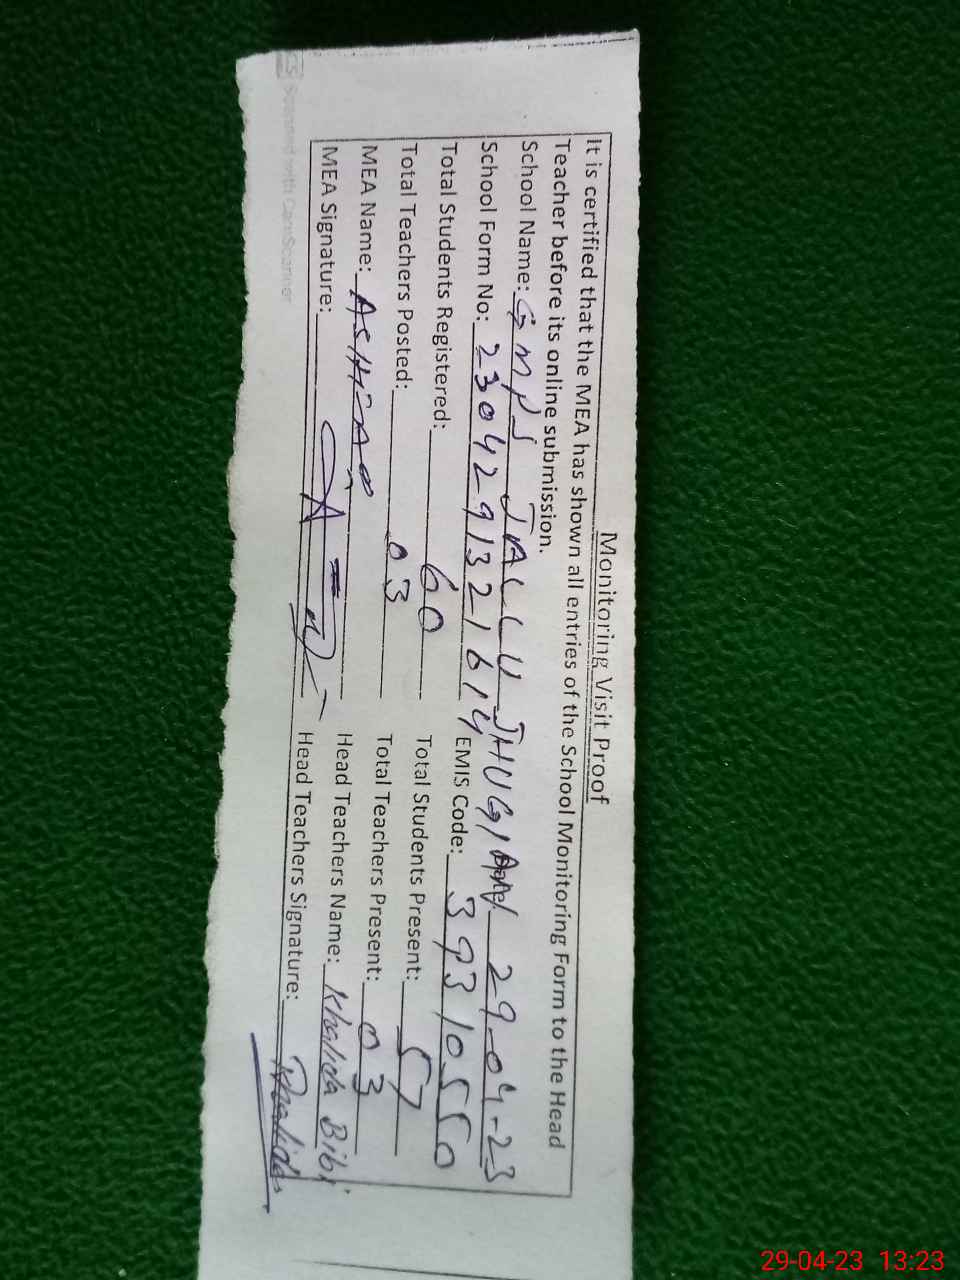 Monitoring Visit Proof
It is certified that the MEA has shown all entries of the School Monitoring Form to the Head
Teacher before its online submission.
School Name: GMPS JALLU JHUGIAN 29-04-23
School Form No: 230429132164 EMIS Code: 39310550
Total Students Registered: 60 Total Students Present: 57
Total Teachers Posted: 03 Total Teachers Present: 03
MEA Name: Head Teachers Name: Khalida Bibi
MEA Signature: Head Teachers Signature: Khalida
CS Scanned with CamScanner
29-04-23 13:23